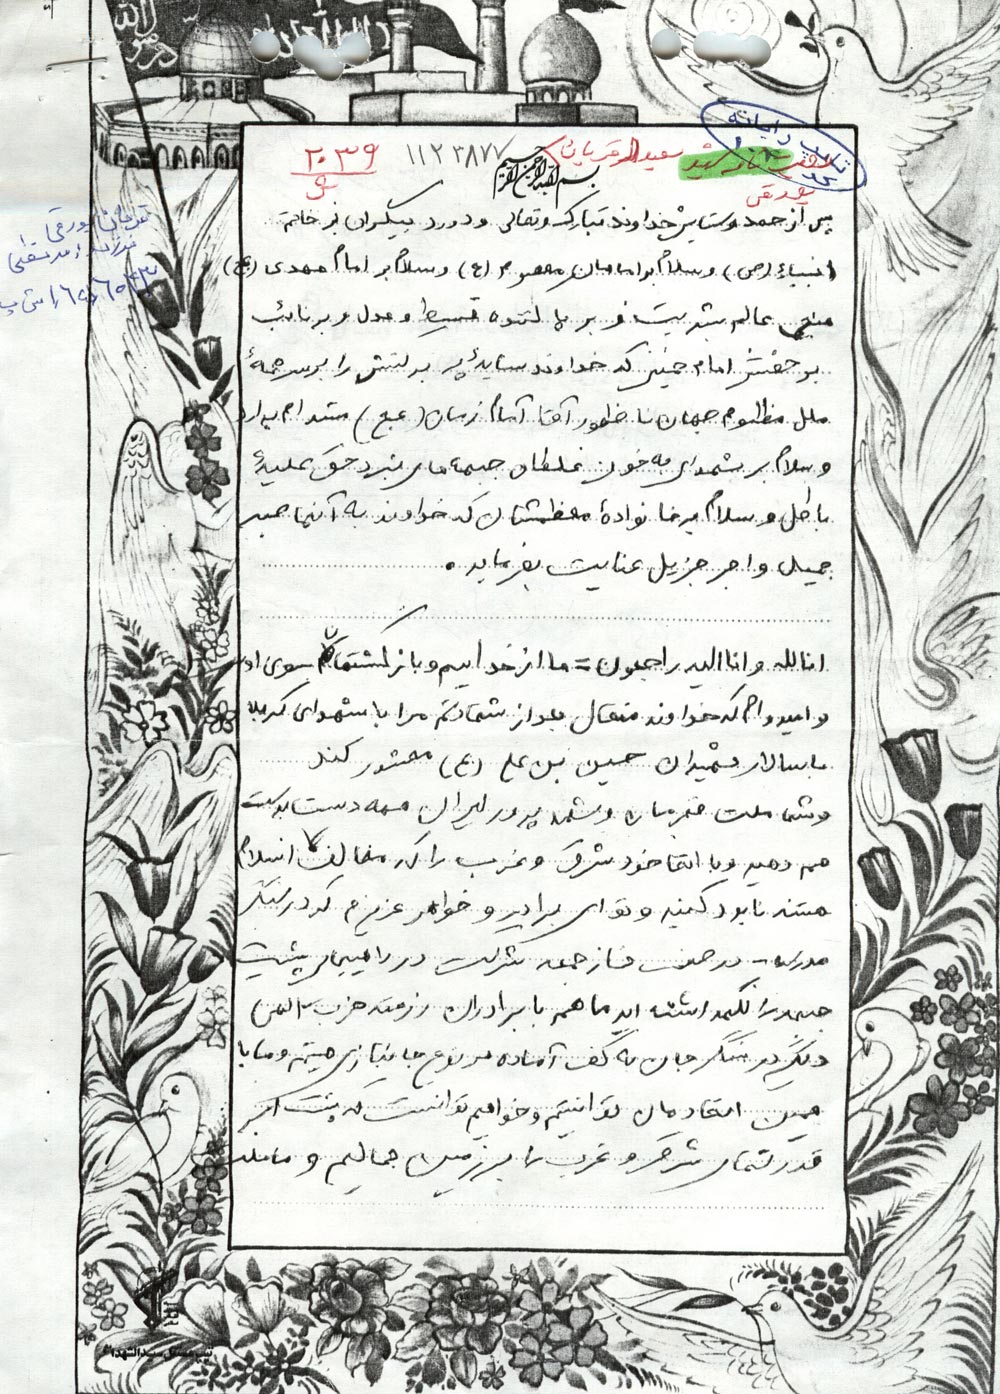 بسم الله الرحمن الرحیم
۱۱۲۳۸۷۷
۲۰۳۹
پس از حمد و ستایش خداوند تبارک و تعالی و درود بیکران بر خاتم
انبیاء (ص) و سلام بر امامان معصوم (ع) و سلام بر امام مهدی (عج)
منجی عالم بشریت و بر پا کننده قسط و عدل و بر نائب
بر حقش امام خمینی که خداوند سایهٔ پر برکتش را بر سر همهٔ
ملل مظلوم جهان تا ظهور آقا امام زمان (عج) مستدام بدارد
و سلام بر شهدای به خون غلطان جبهه‌های نبرد حق علیهٔ
باطل و سلام بر خانوادهٔ معظمشان که خداوند به آنها صبر
جمیل و اجر جزیل عنایت بفرماید.
انا لله و انا الیه راجعون = ما از خداییم و بازگشتمان سوی او
و امیدوام که خداوند متعال بعد از شهادتم مرا با شهدای کربلا
با سالار شهیدان حسین بن علی (ع) محشور کند
و شما ملت قهرمان و شهید پرور ایران همه دست بدست
هم دهید و با اتحاد خود شرق و غرب را که مخالف اسلام
هستند نابود کنید و تو ای برادر و خواهر عزیزم که در سنگر
مدرسه - در صف نماز جمعه شرکت در راهپیمایی پشت
جبهه را نگهداشته اید ما هم با برادران رزمنده حزب الهی
دیگر در سنگر جان به کف آماده هر نوع جانبازی هستیم و ما با
همین اتحادمان توانستیم و خواهیم توانست که پشت ابر
قدرتهای شرق و غرب را بر زمین بمالیم و ما ملت